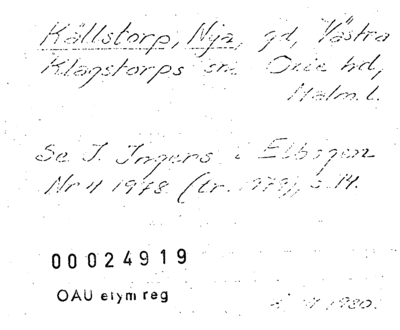 Källstorp, Nya, gd, Västra
Klagstorps sn Oxie hd,
Malm. l.
Se J. Ingers i Elbogen
Nr 4 1978 (tr. 1979), s. 14.
00024919
OAU etym reg
1980.